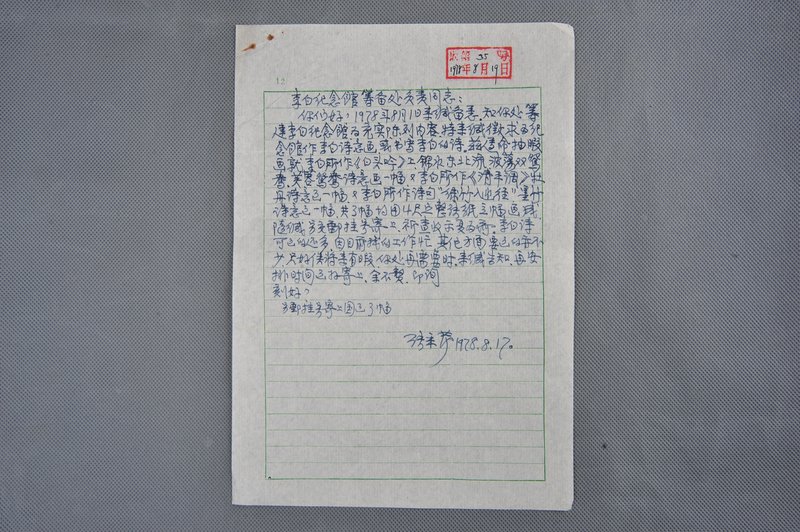 收 35 号
1978年8月19日
12
李白纪念馆筹备处负责同志：
你们好！1978年8月1日来缄备悉，知你处筹
建李白纪念馆为充实陈列内容，特来缄徵求为纪
念馆作李白诗意画或书写李白的诗。兹遵命抽暇
画就李白所作《白头吟》上锦水东北流，波荡双鸳
鸯，芙蓉鸳鸯诗意画一幅，又李白所作《清平调》牡
丹诗意画一幅，又李白所作诗句"绿竹入幽径"墨竹
诗意画一幅，共3幅均用4尺宣整张纸，画成
随缄另邮挂号寄上，祈查收示复为荷。李白诗
可画的还多，因目前我的工作忙，其他方面要画的亦不
少，只好俟将来有暇，你处再需要时，来缄告知，再安
排时间画好寄上。余不赘，即询
刻好！
另邮挂号寄上国画3幅
1978.8.17。